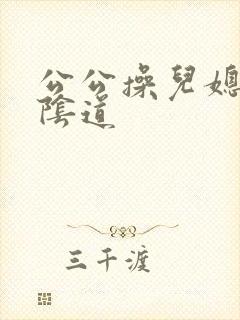 公公操兒媳
陰道
三千渡